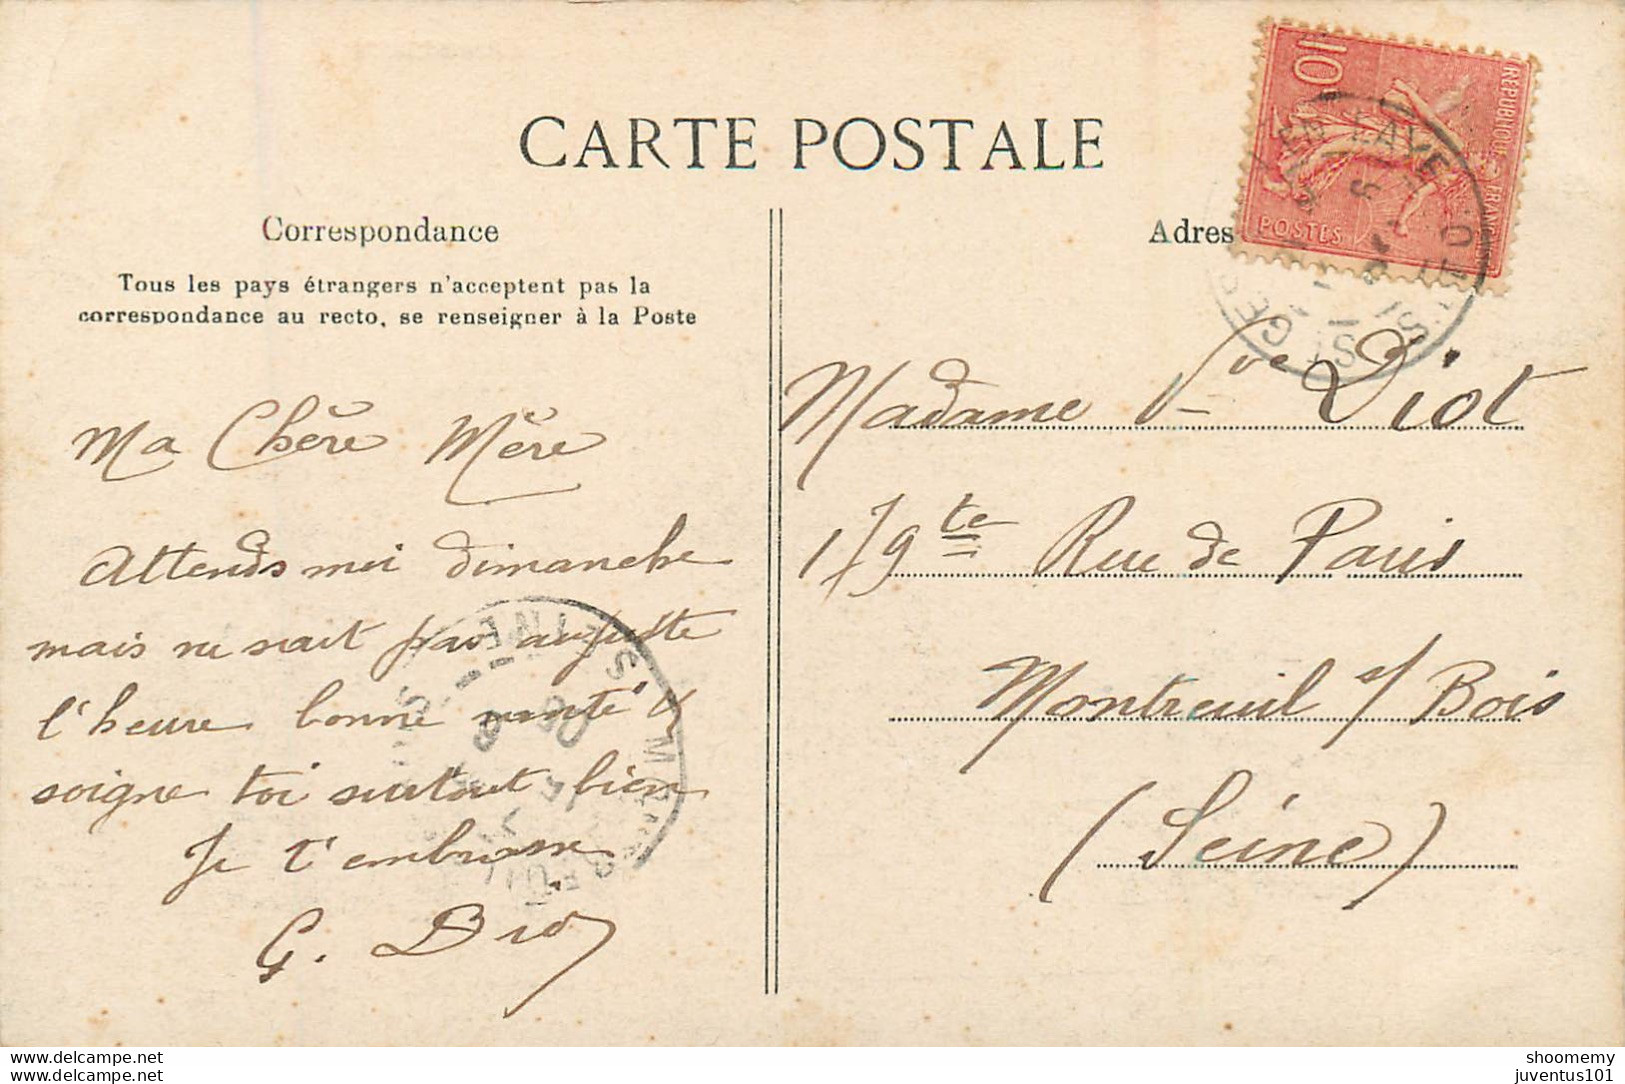 CARTE POSTALE
Correspondance
Tous les pays étrangers n'acceptent pas la
correspondance au recto, se renseigner à la Poste
Ma Chère Mère
Attends moi dimanche
mais ne sait pas au juste
l'heure bonne santé &
soigne toi surtout bien
Je t'embrasse
G. Diot
Adres
RÉPUBLIQUE FRANÇAISE
10
POSTES
Madame Vve Diot
179 te Rue de Paris
Montreuil s/ Bois
(Seine)
More pictures at www.delcampe.net
shoomemy
juventus101